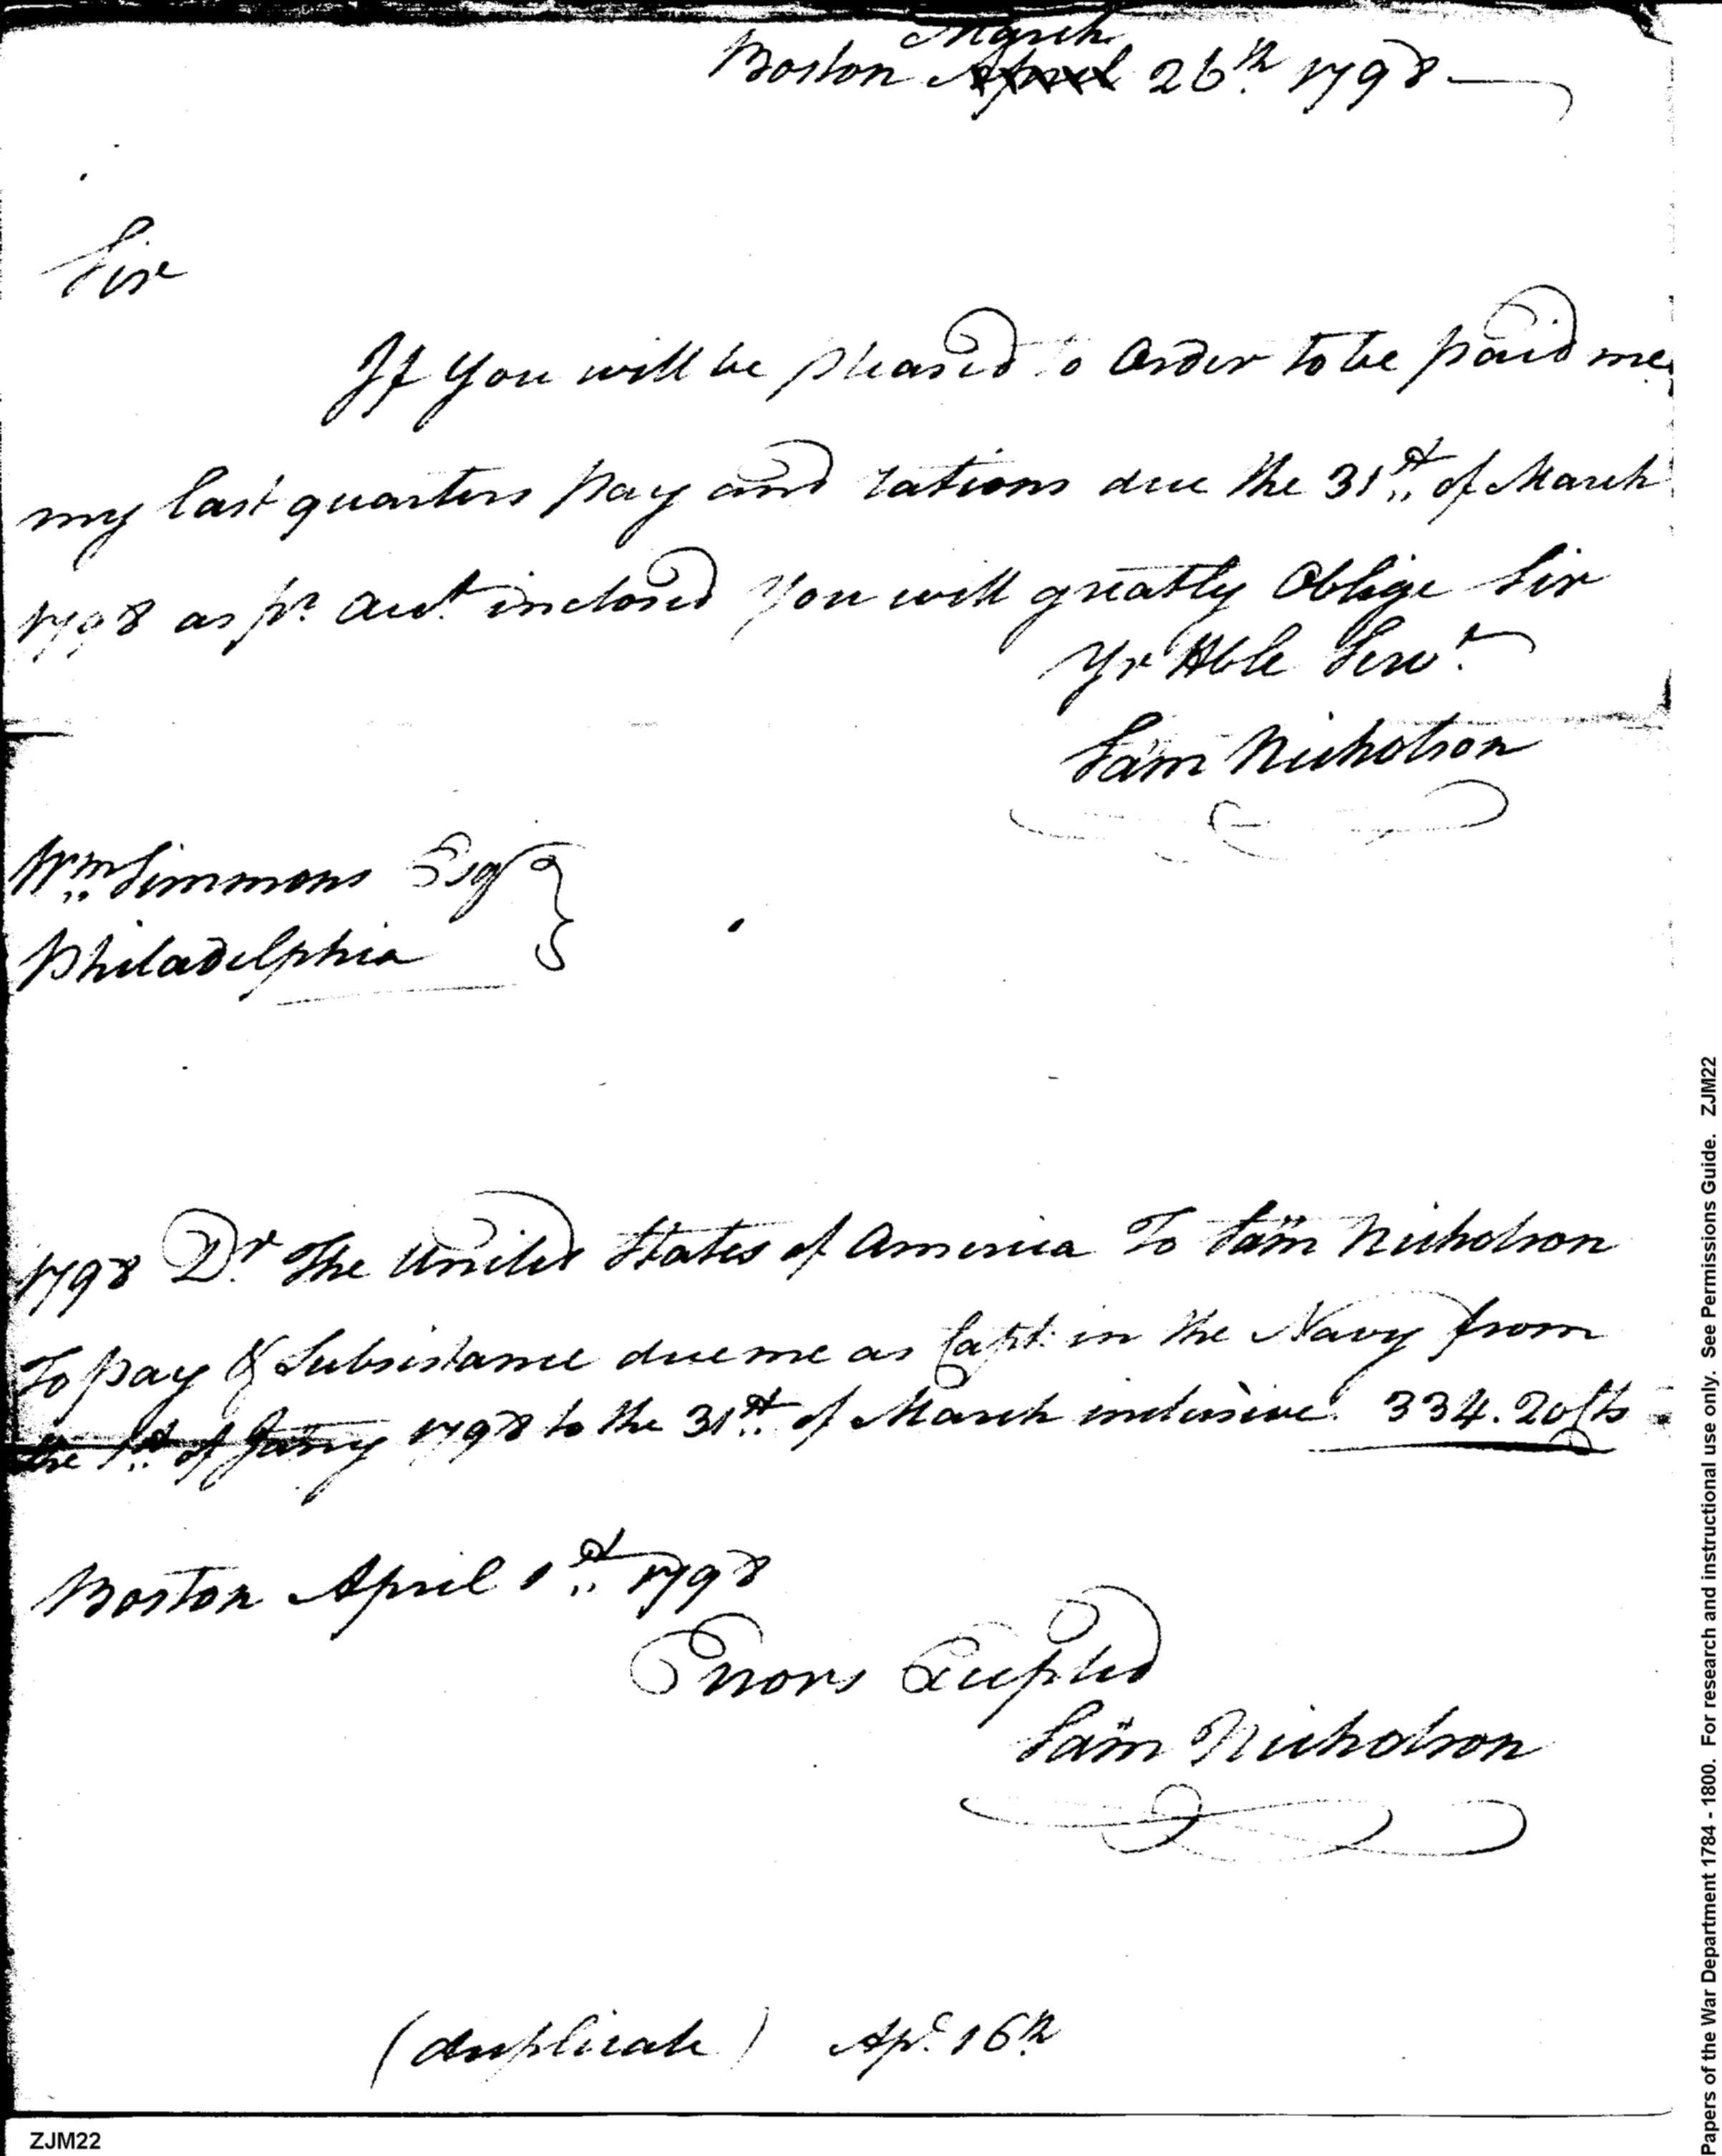 March
Boston April 26th 1798
Sir
If You will be pleased to Order to be paid me
my last quarters pay and rations due the 31st of March
1798 as pr. Acct. inclosed You will greatly Oblige Sir
Yr Hble Servt.
Sam Nicholson
Wm. Simmons Esqr
Philadelphia
1798 Dr. The United States of America To Sam Nicholson
To pay & Subsistance due me as Capt. in the Navy from
the 1st. of Janry 1798 to the 31st. of March inclusive. 334.20 Cts
Boston April 1st. 1798
Errors Excepted
Sam Nicholson
(duplicate) Apl. 16th
ZJM22
Papers of the War Department 1784 - 1800. For research and instructional use only. See Permissions Guide. ZJM22